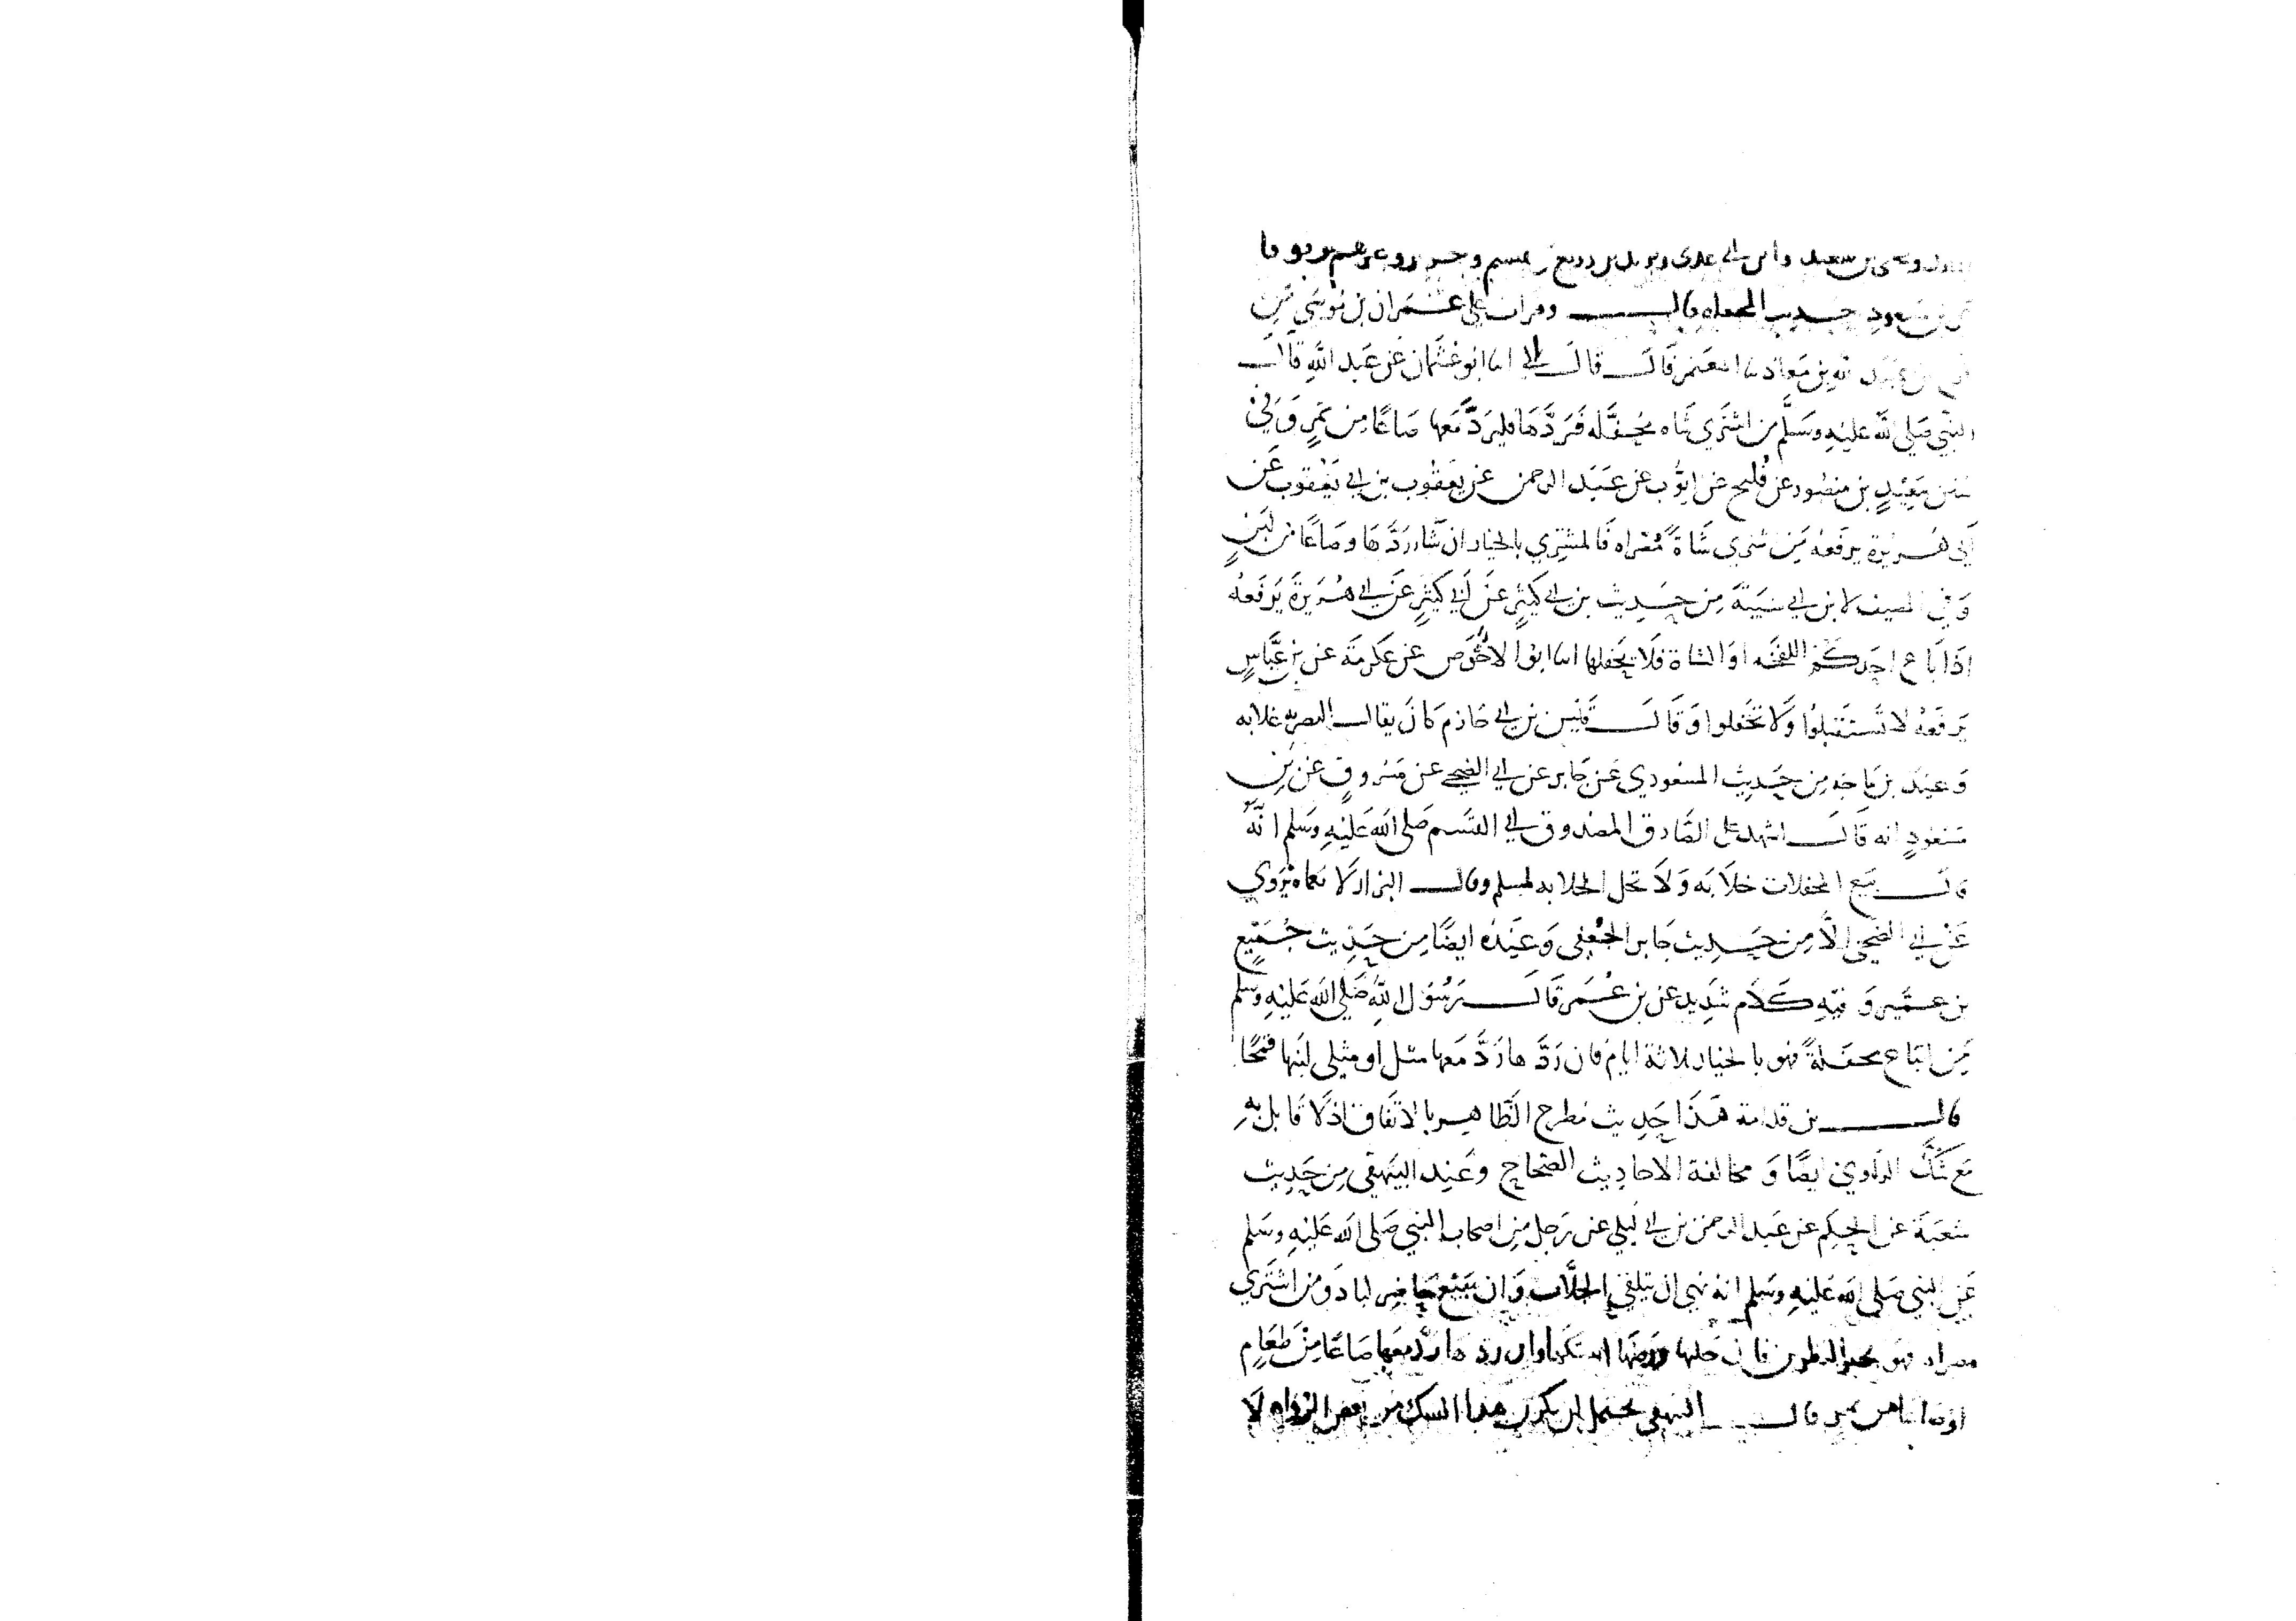 ويحيى بن سعيد وابن ابي عدي ويزيد بن زريع وهشيم وجرير وغيرهم موقوفا
بن مسعود حديث المحفله قال وقرات على عمران بن موسى
بن معاذ ثنا معتمر قال قال ابي انا ابو عثمان عن عبد الله قال
النبي صلى الله عليه وسلم من اشترى شاه محفله فردها فليرد معها صاعا من تمر وفي
سنن سعيد بن منصور عن فليح عن ايوب عن عبد الرحمن عن يعقوب بن ابي يعقوب عن
ابي هريرة يرفعه من اشترى شاة مصراه فالمشتري بالخيار ان شا ردها وصاعا من لبن
وفي المصنف لابن ابي شيبة من حديث بن ابي كثير عن ابي كثير عن ابي هريرة يرفعه
اذا باع احدكم اللقحه او الشاة فلا يحفلها انا ابو الاحوص عن عكرمة عن بن عباس
يرفعه لا تستقبلوا ولا تحفلوا وقال قيس بن ابي حازم كان يقال التصريه خلابه
وعند بن ماجه من حديث المسعودي عن جابر عن ابي الضحى عن مسروق عن بن
مسعود انه قال اشهد على الصادق المصدوق ابي القسم صلى الله عليه وسلم انه
قال بيع المحفلات خلابه ولا تحل الخلابه لمسلم وقال البزار لا نعلمه يروى
عن ابي الضحى الا من حديث جابر الجعفي وعنده ايضا من حديث جميع
بن عمير وفيه كلام شديد عن بن عمر قال رسول الله صلى الله عليه وسلم
من ابتاع محفلة فهو بالخيار ثلاثة ايام فان ردها رد معها مثل او مثلي لبنها قمحا
قال بن قدامة هذا حديث مطرح الظاهر بالاتفاق اذ لا قابل به
مع شك الراوي ايضا ومخالفة الاحاديث الصحاح وعند البيهقي من حديث
شعبة عن الحكم عن عبد الرحمن بن ابي ليلى عن رجل من اصحاب النبي صلى الله عليه وسلم
عن النبي صلى الله عليه وسلم انه نهى ان يتلقى الجلاب وان يبيع حاضر لباد ومن اشترى
مصراه فهو بخير النظرين فان حلبها ورضيها امسكها وان ردها رد معها صاعا من طعام
او صاعا من تمر قال البيهقي يحتمل ان يكون هذا الشك من بعض الرواه لا